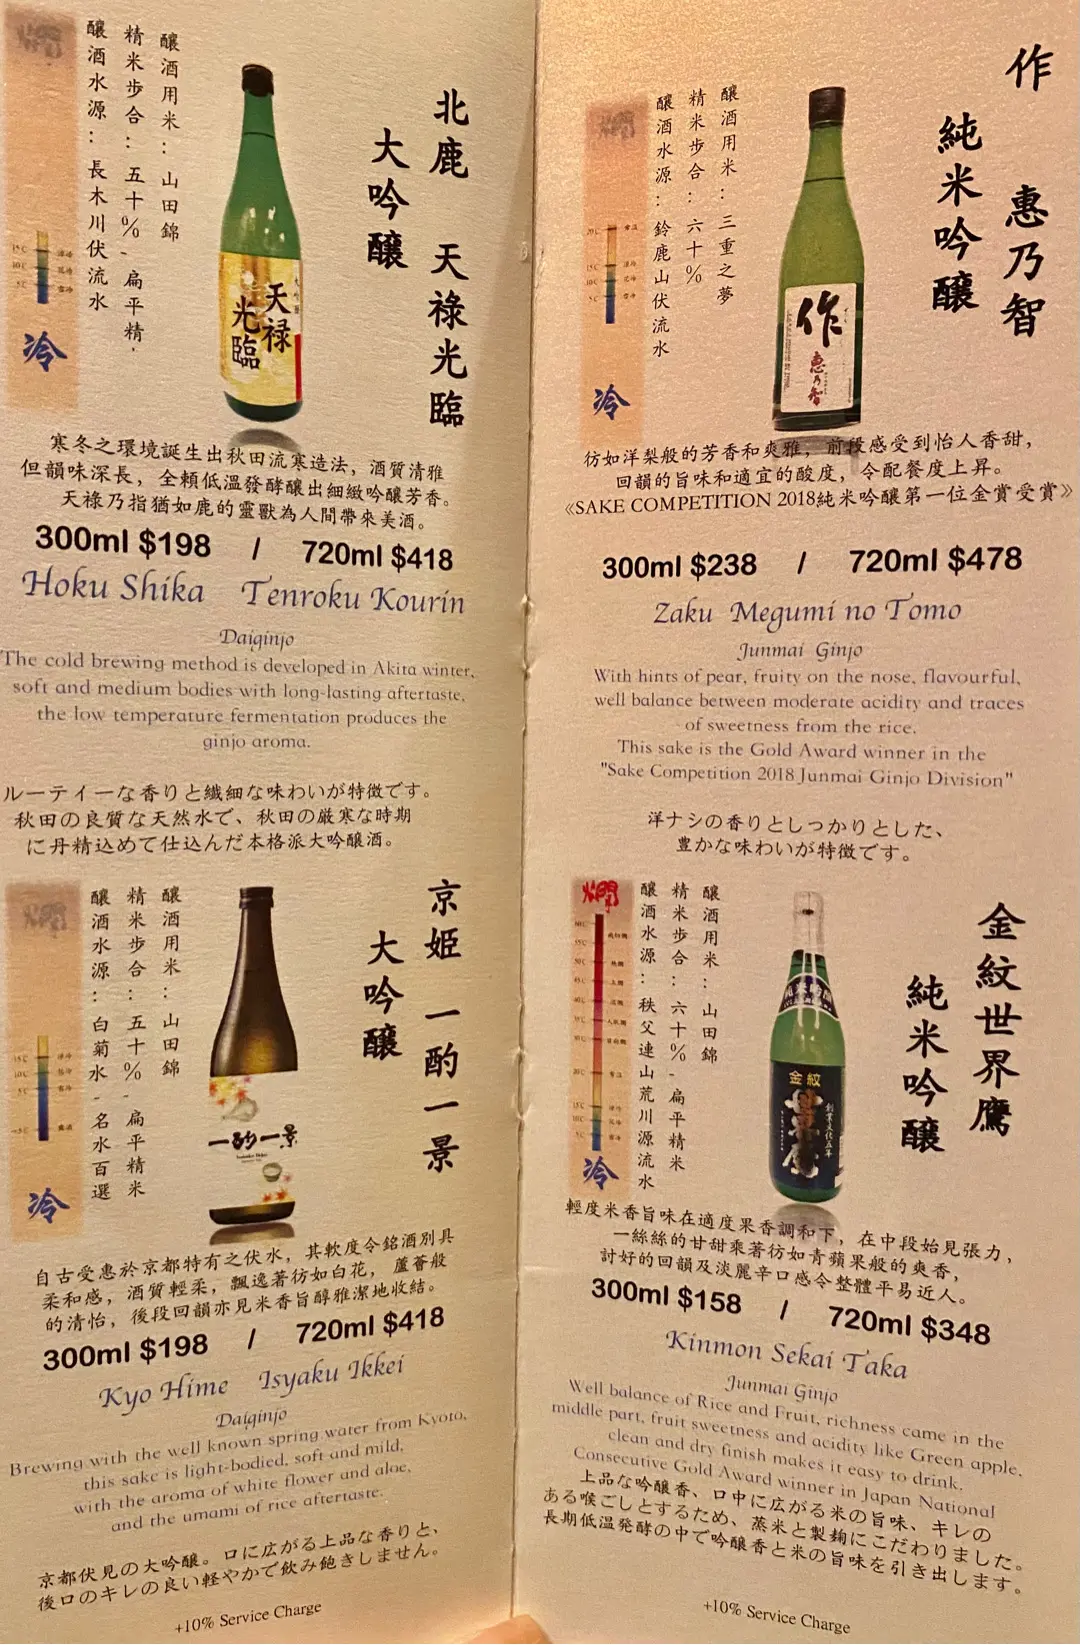 北鹿 天祿光臨
大吟醸
醸酒用米：山田錦
精米步合：五十%-扁平精.
醸酒水源：長木川伏流水
燗
15℃ 涼冷
10℃ 花冷
5℃ 雪冷
冷
大吟醸
天禄
光臨
寒冬之環境誕生出秋田流寒造法，酒質清雅
但韻味深長，全賴低溫發酵醸出細緻吟醸芳香。
天祿乃指猶如鹿的靈獸為人間帶來美酒。
300ml $198 / 720ml $418
Hoku Shika Tenroku Kourin
Daiginjo
The cold brewing method is developed in Akita winter,
soft and medium bodies with long-lasting aftertaste,
the low temperature fermentation produces the
ginjo aroma.
ルーティーな香りと繊細な味わいが特徴です。
秋田の良質な天然水で、秋田の厳寒な時期
に丹精込めて仕込んだ本格派大吟醸酒。
京姫 一酌一景
大吟醸
醸酒用米：山田錦
精米步合：五十%-扁平精米
醸酒水源：白菊水-名水百選
燗
15℃ 涼冷
10℃ 花冷
5℃ 雪冷
-5℃
冷
一酌一景
自古受惠於京都特有之伏水，其軟度令銘酒別具
柔和感，酒質輕柔，飄逸著彷如白花，蘆薈般
的清怡，後段回韻亦見米香旨醇雅潔地收結。
300ml $198 / 720ml $418
Kyo Hime Isyaku Ikkei
Daiginjo
Brewing with the well known spring water from Kyoto,
this sake is light-bodied, soft and mild,
with the aroma of white flower and aloe,
and the umami of rice aftertaste.
京都伏見の大吟醸。口に広がる上品な香りと、
後口のキレの良い軽やかで飲み飽きしません。
+10% Service Charge
作 惠乃智
純米吟醸
醸酒用米：三重之夢
精米步合：六十%
醸酒水源：鈴鹿山伏流水
燗
20℃ 常温
15℃ 涼冷
10℃ 花冷
5℃ 雪冷
冷
作
惠乃智
彷如洋梨般的芳香和爽雅，前段感受到怡人香甜，
回韻的旨味和適宜的酸度，令配餐度上昇。
《SAKE COMPETITION 2018純米吟醸第一位金賞受賞》
300ml $238 / 720ml $478
Zaku Megumi no Tomo
Junmai Ginjo
With hints of pear, fruity on the nose, flavourful,
well balance between moderate acidity and traces
of sweetness from the rice.
This sake is the Gold Award winner in the
"Sake Competition 2018 Junmai Ginjo Division"
洋ナシの香りとしっかりとした、
豊かな味わいが特徴です。
金紋世界鷹
純米吟醸
醸酒用米：山田錦
精米步合：六十%-扁平精米
醸酒水源：秩父連山荒川源流水
燗
60℃
55℃ 飛切燗
50℃ 熱燗
45℃ 上燗
40℃
35℃ 人肌燗
30℃ 日向燗
20℃ 常温
15℃ 涼冷
10℃ 花冷
5℃ 雪冷
冷
金紋
輕度米香旨味在適度果香調和下，在中段始見張力，
一絲絲的甘甜乘著彷如青蘋果般的爽香，
討好的回韻及淡麗辛口感令整體平易近人。
300ml $158 / 720ml $348
Kinmon Sekai Taka
Junmai Ginjo
Well balance of Rice and Fruit, richness came in the
middle part, fruit sweetness and acidity like Green apple,
clean and dry finish makes it easy to drink,
Consecutive Gold Award winner in Japan National
上品な吟醸香、口中に広がる米の旨味、キレの
ある喉ごしとするため、蒸米と製麹にこだわりました。
長期低温発酵の中で吟醸香と米の旨味を引き出します。
+10% Service Charge